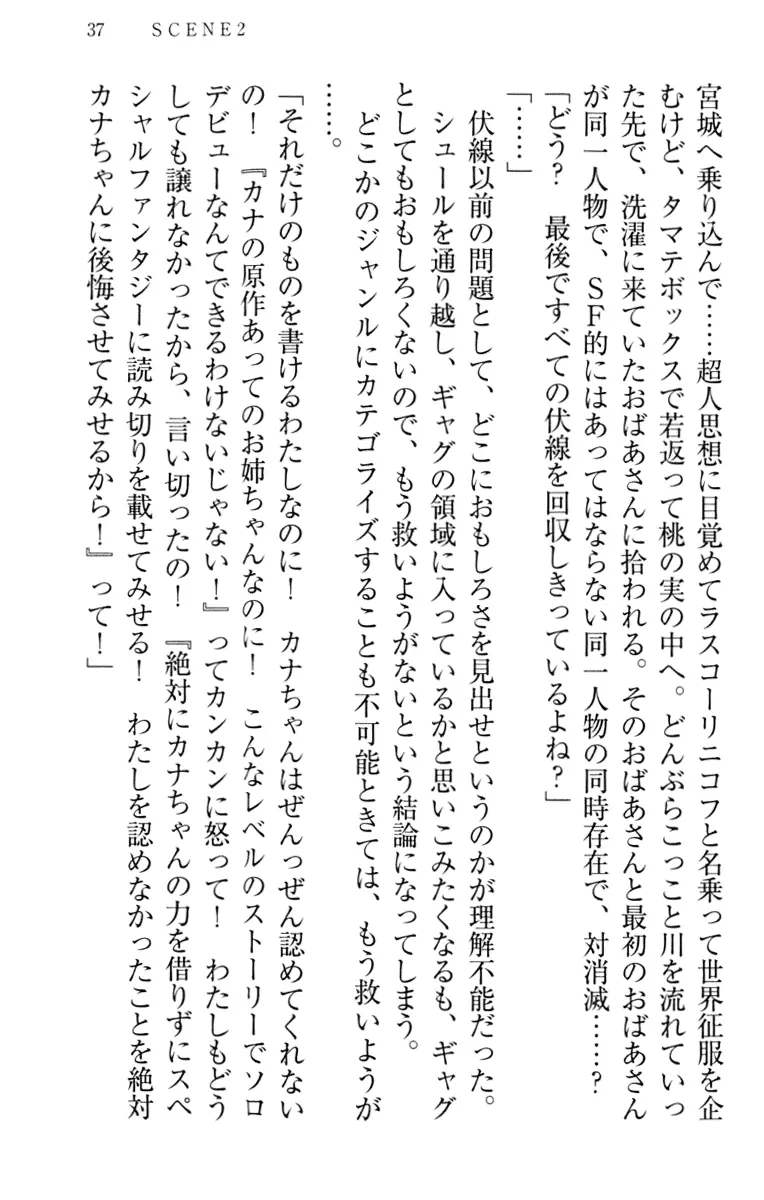 37　SCENE2
宮城へ乗り込んで……超人思想に目覚めてラスコーリニコフと名乗って世界征服を企
むけど、タマテボックスで若返って桃の実の中へ。どんぶらこっこと川を流れていっ
た先で、洗濯に来ていたおばあさんに拾われる。そのおばあさんと最初のおばあさん
が同一人物で、ＳＦ的にはあってはならない同一人物の同時存在で、対消滅……？
「どう？　最後ですべての伏線を回収しきっているよね？」
「……」
　伏線以前の問題として、どこにおもしろさを見出せというのかが理解不能だった。
　シュールを通り越し、ギャグの領域に入っているかと思いこみたくなるも、ギャグ
としてもおもしろくないので、もう救いようがないという結論になってしまう。
　どこかのジャンルにカテゴライズすることも不可能ときては、もう救いようが
……。
「それだけのものを書けるわたしなのに！　カナちゃんはぜんっぜん認めてくれない
の！　『カナの原作あってのお姉ちゃんなのに！　こんなレベルのストーリーでソロ
デビューなんてできるわけないじゃない！』ってカンカンに怒って！　わたしもどう
しても譲れなかったから、言い切ったの！　『絶対にカナちゃんの力を借りずにスペ
シャルファンタジーに読み切りを載せてみせる！　わたしを認めなかったことを絶対
カナちゃんに後悔させてみせるから！』って！」